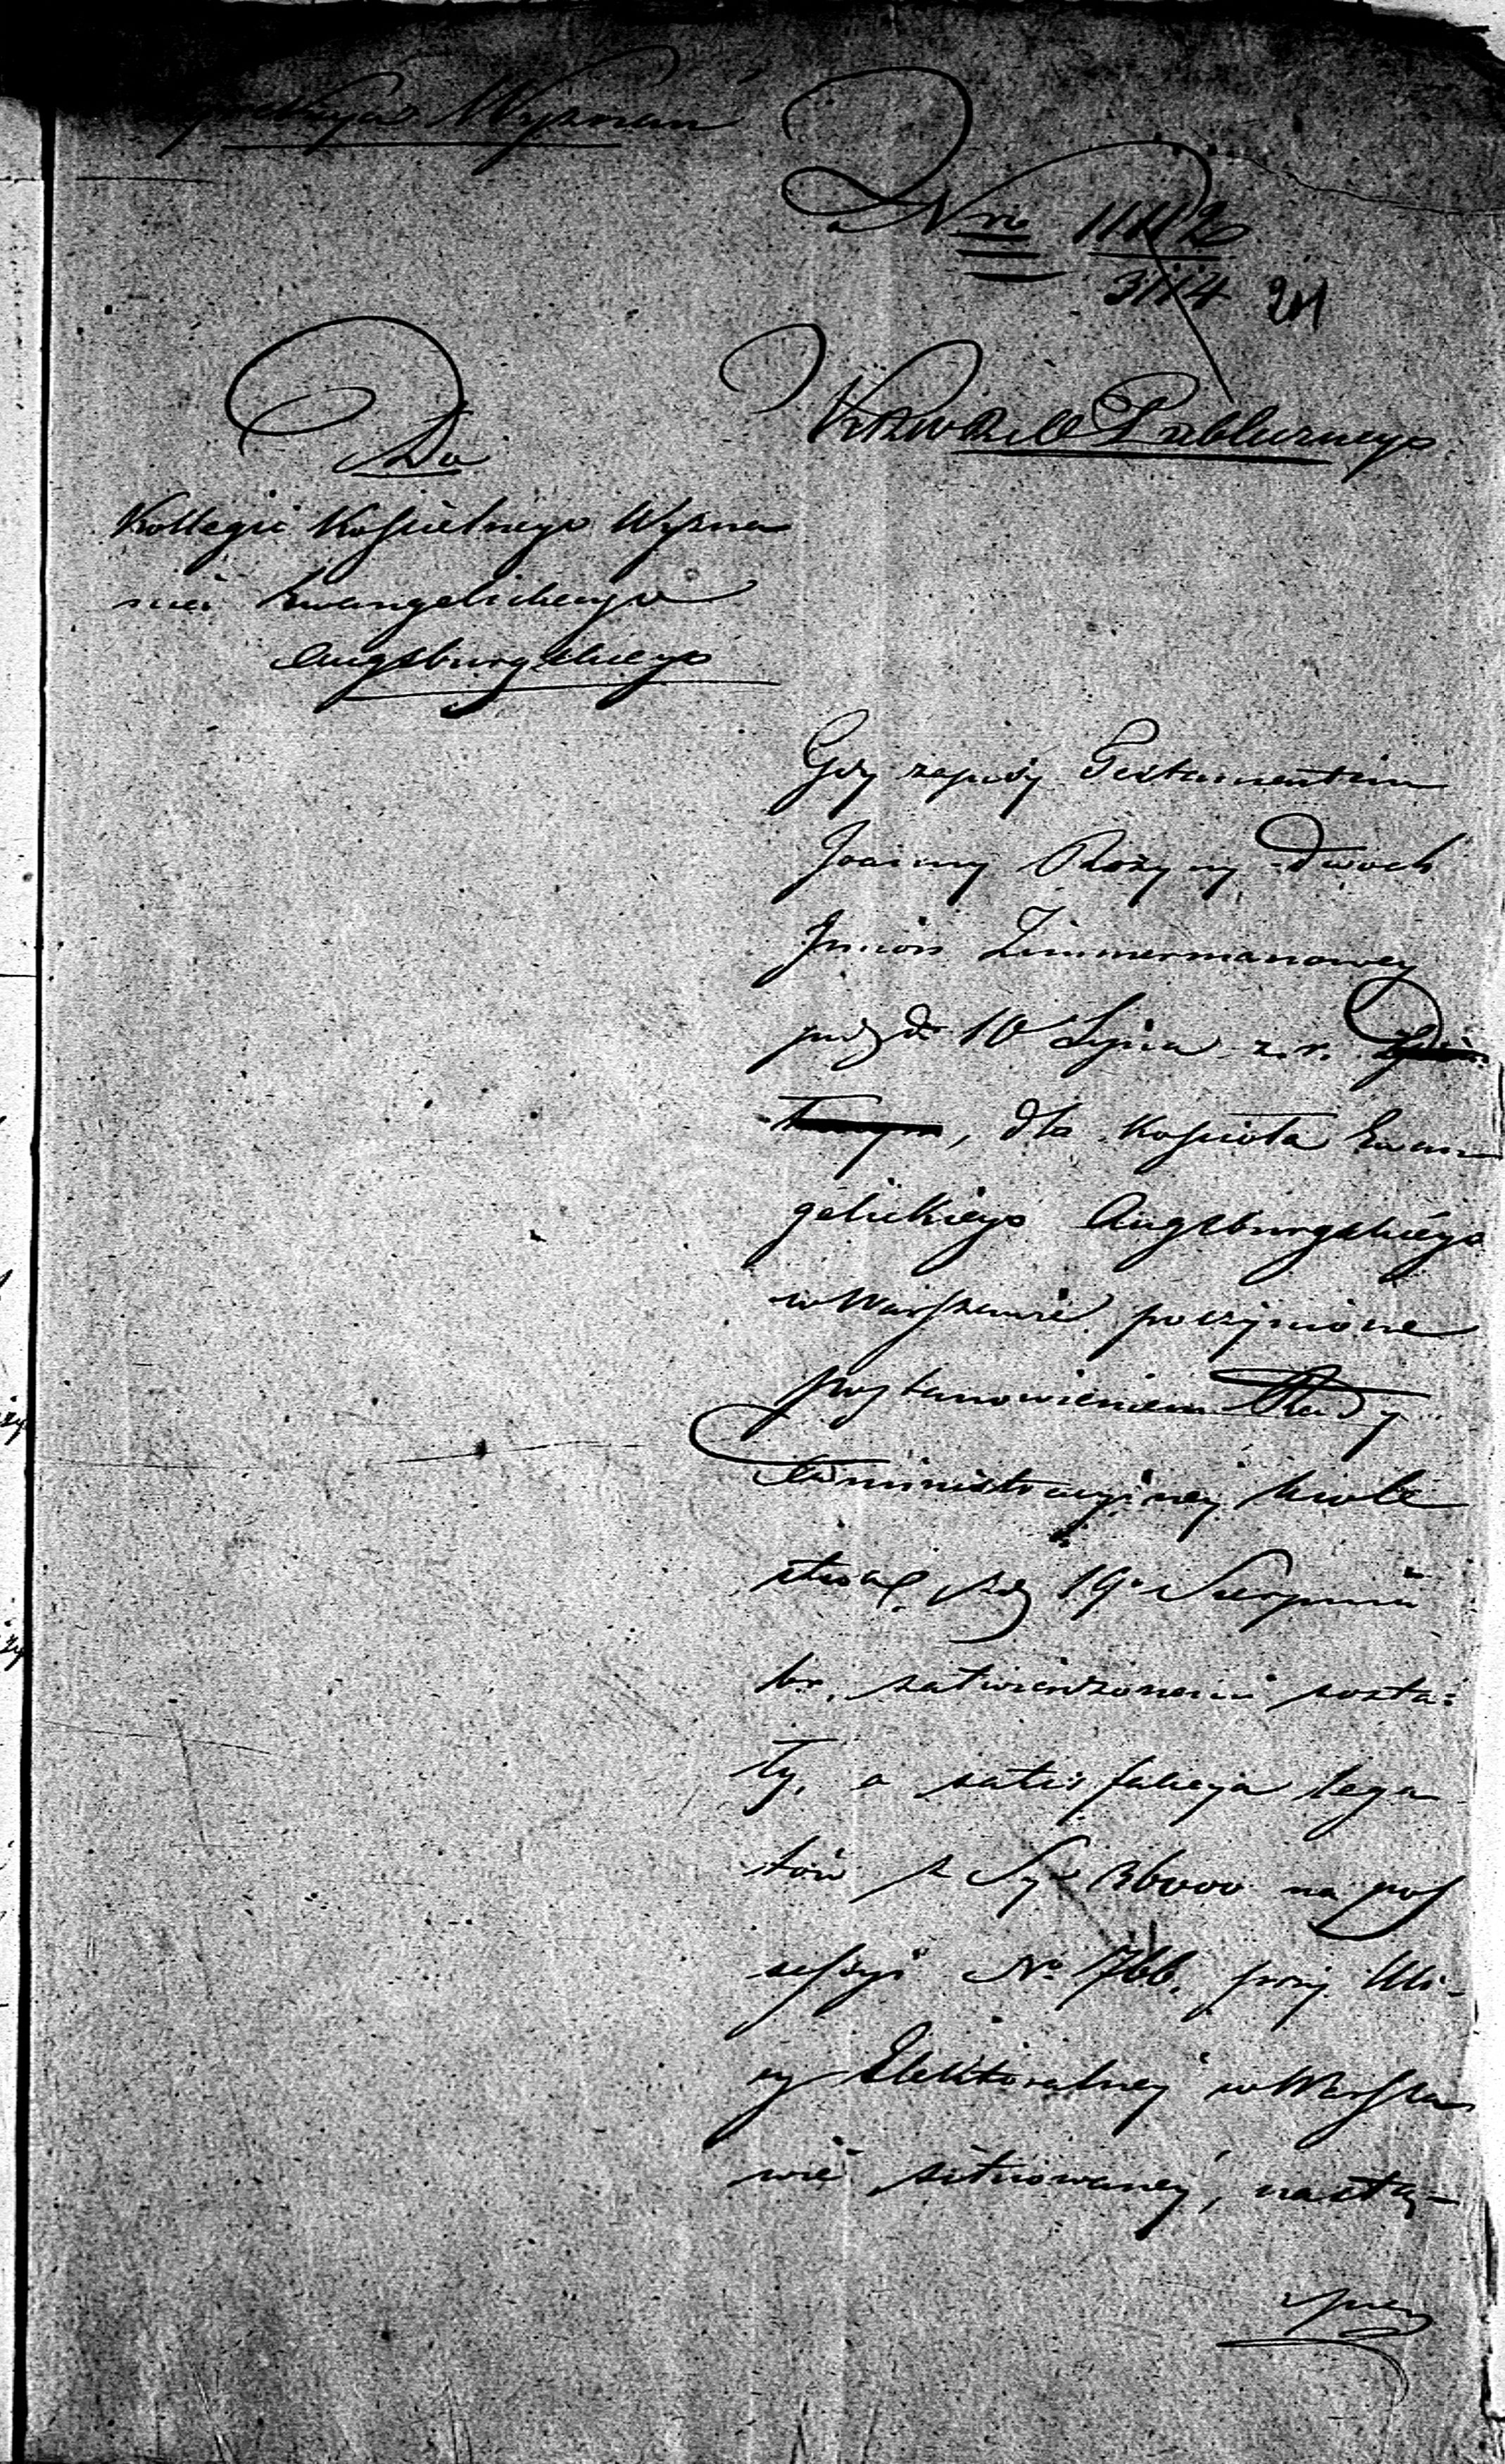 Sekcya Wyznań
Nro 11112
3114 201
Do
Kollegii Kościelnego Wyzna
nia Ewangelickiego
Augsburgskiego
Publicznego
Gdy zapisy Testamentem
Joanny Rozyny dwoch
Imion Zimmermanowey
pod d. 10 Lipca z. r.
dla Kościoła Ewan
gelickiego Augsburgskiego
w Warszawie poczynione
postanowieniem Rady
Administracyiney Krole
stwa pod 19 Sierpnia
br. zatwierdzonemi zosta:
ły, a satisfakcya lega
tów z Sm̃y 36000 na pos
sessyi No 766. przy Uli-
cy Elektoralney w Warsza
wie situowaney, nastą-